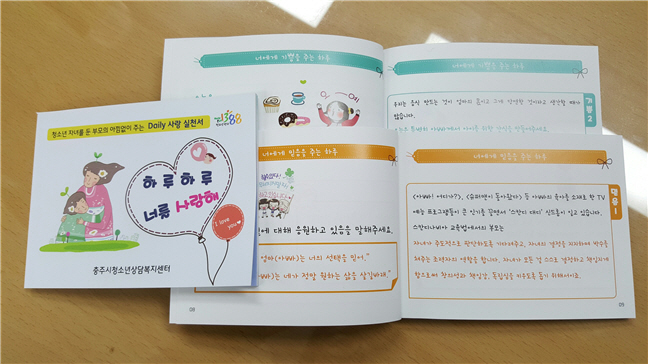 청소년 자녀를 둔 부모의 아낌없이 주는 Daily 사랑 실천서
1388
하루하루
너를 사랑해
I love you
충주시청소년상담복지센터
너에게 기쁨을 주는 하루
너에게 기쁨을 주는 하루
기쁨 2
너에게 믿음을 주는 하루
에 대해 응원하고 있음을 말해주세요.
엄마(아빠)는 너의 선택을 믿어."
(아빠)는 네가 정말 원하는 삶을 살길바래."
너에게 믿음을 주는 하루
믿음 1
<아빠! 어디가?>, <슈퍼맨이 돌아왔다> 등 아빠의 육아를 소재로 한 TV
예능 프로그램들이 큰 인기를 끌면서 '스칸디 대디' 신드롬이 일고 있습니다.
스칸디나비아 교육법에서의 부모는
자녀가 주도적으로 판단하도록 기다려주고, 자녀의 결정을 지지하며 박수를
쳐주는 조력자의 역할을 합니다. 자녀가 모든 걸 스스로 결정하고 책임지게
함으로써 창의성과 책임감, 독립심을 키우도록 돕기 위해서이죠.